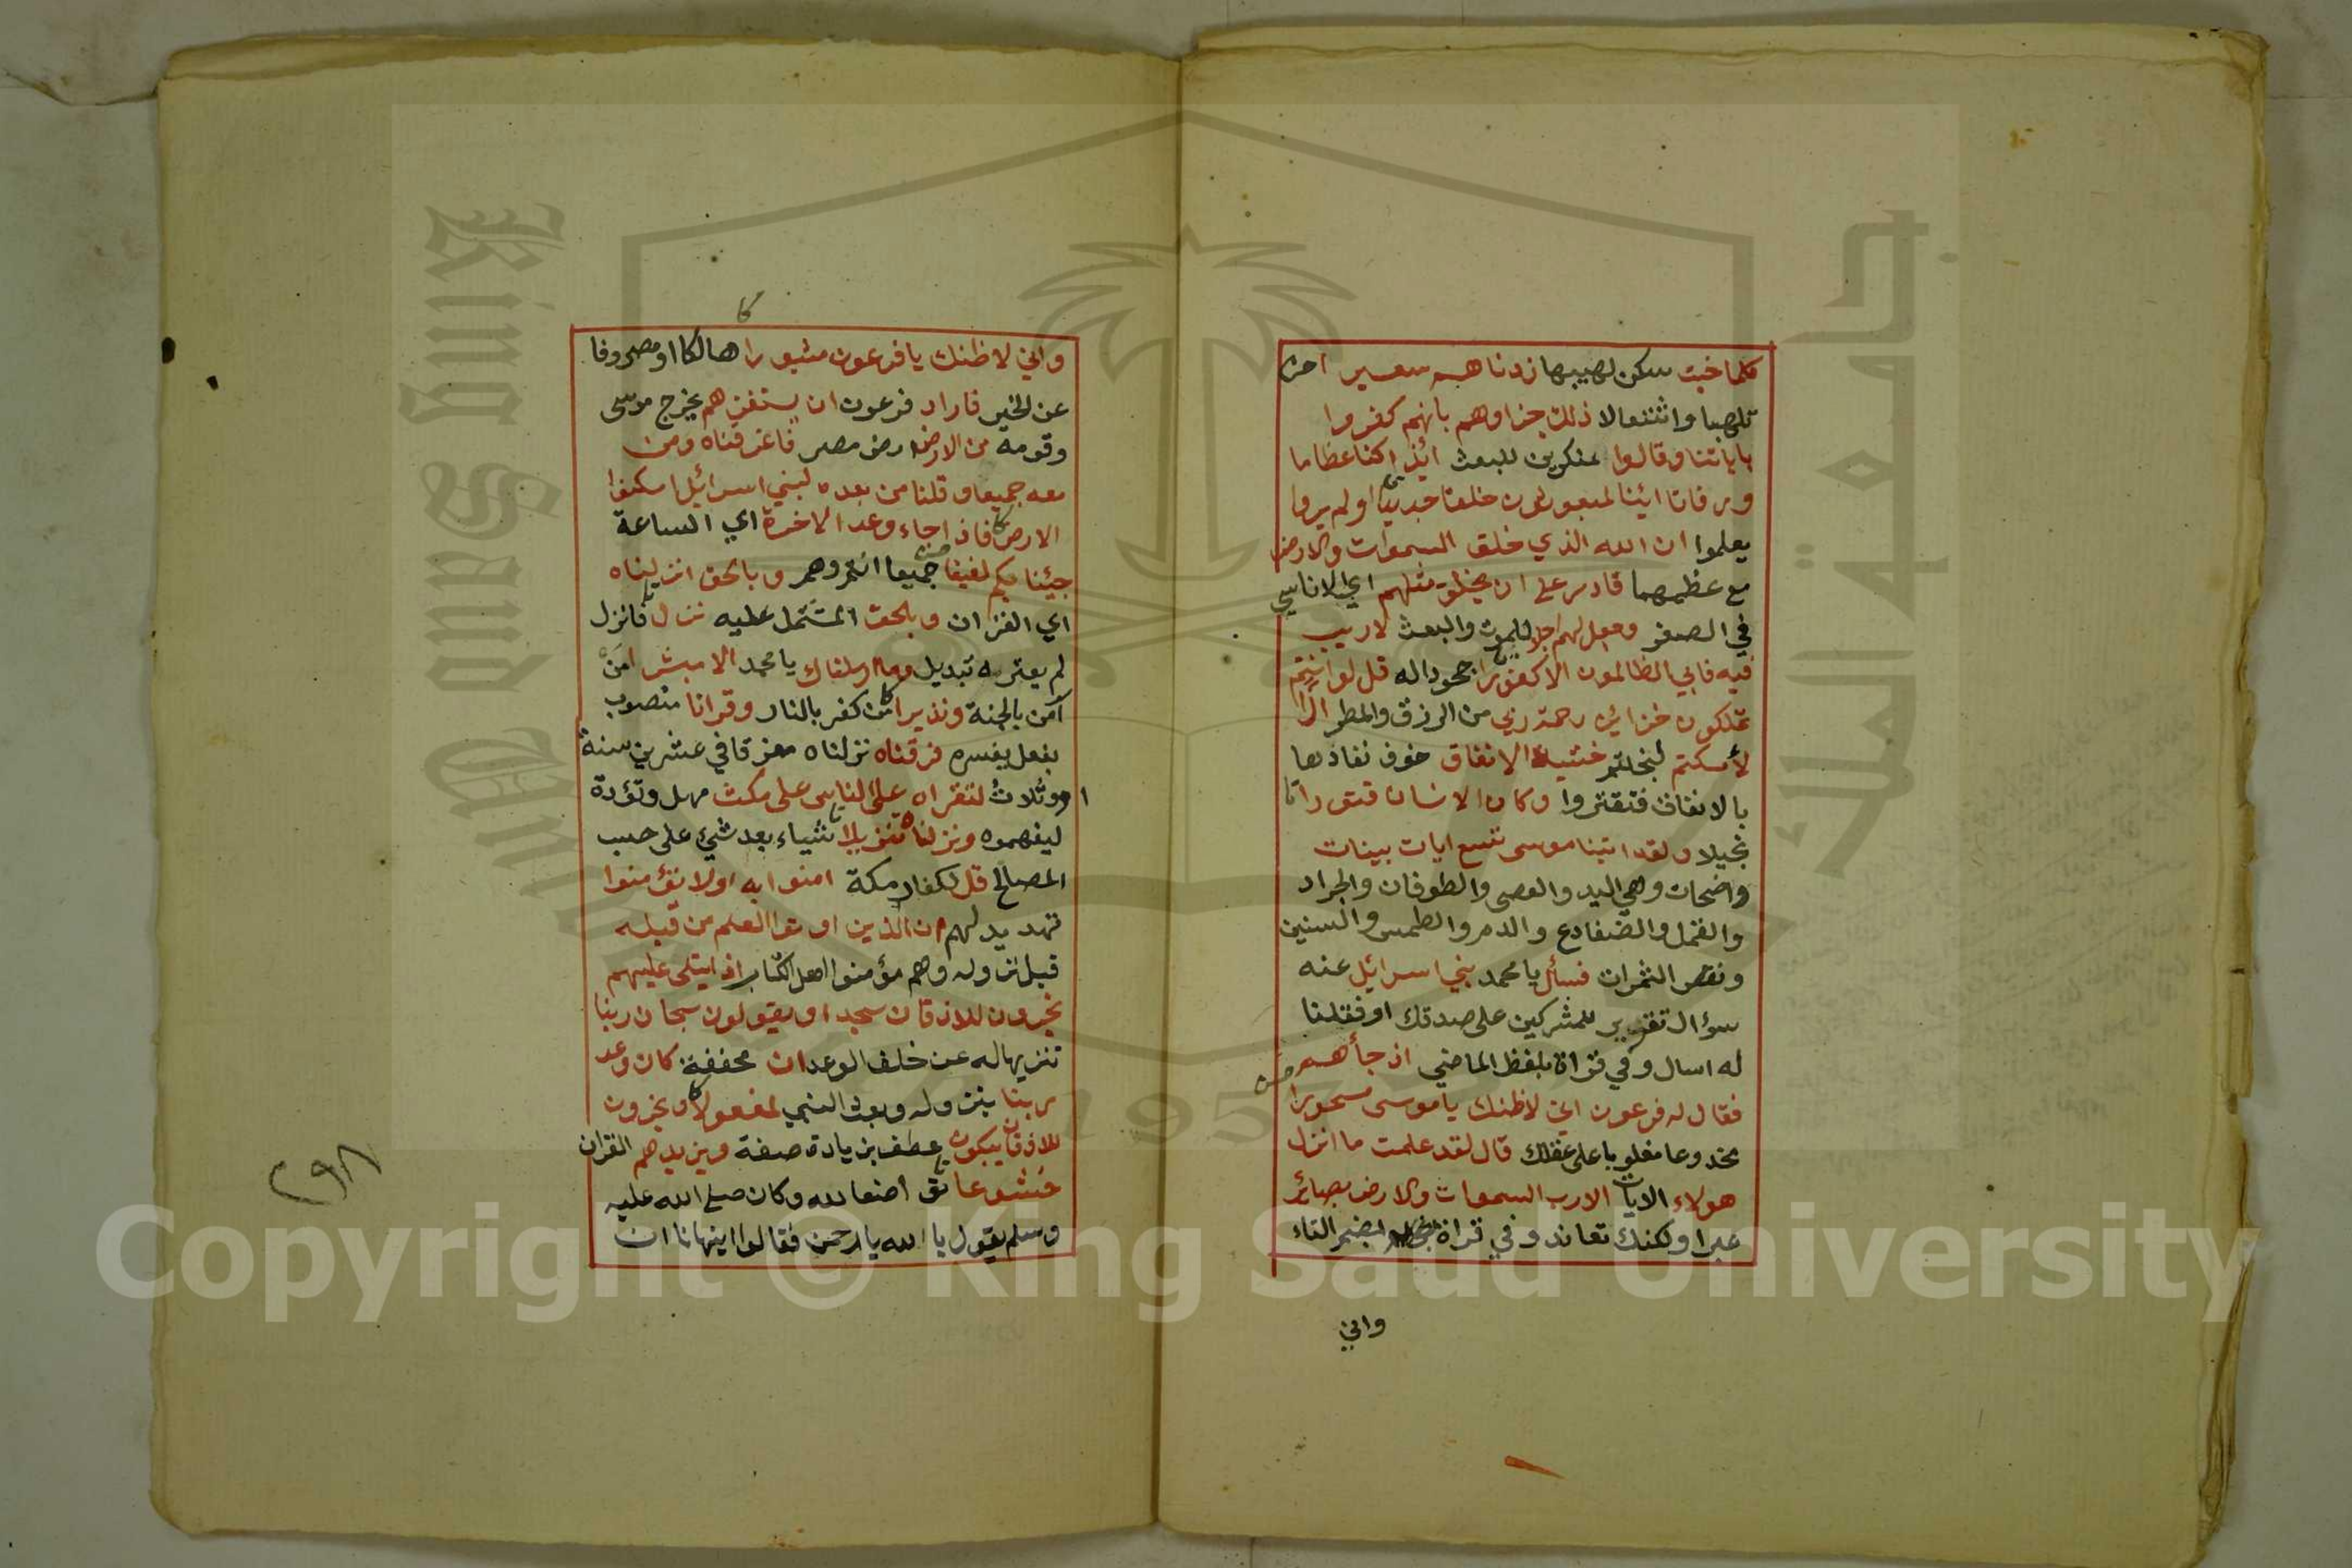 كلما خبت سكن لهيبها زدناهم سعيرا
تلهبا واشتعالا ذلك جزاوهم بانهم كفروا
باياتنا وقالوا منكرين للبعث ائذا كنا عظاما
ورفاتا ائنا لمبعوثون خلقا جديدا اولم يروا
يعلموا ان الله الذي خلق السموات والارض
مع عظمهما قادر على ان يخلق مثلهم اي الاناسي
في الصغر وجعل لهم اجلا للموت والبعث لا ريب
فيه فابي الظالمون الا كفورا جحودا له قل لو انتم
تملكون خزائن رحمة ربي من الرزق والمطر اذا
لأمسكتم لبخلتم خشية الانفاق خوف نفادها
بالانفاق فتقتروا وكان الانسان قتورا
بخيلا ولقد اتينا موسى تسع ايات بينات
واضحات وهي اليد والعصى والطوفان والجراد
والقمل والضفادع والدم والطمس والسنين
ونقص الثمرات فسأل يا محمد بني اسرائيل عنه
سؤال تقرير للمشركين على صدقك او فقلنا
له اسال وفي قراة بلفظ الماضي اذ جأهم
فقال له فرعون اني لاظنك يا موسى مسحورا
مخدوعا مغلوبا على عقلك قال لقد علمت ما انزل
هولاء الايات الا رب السموات والارض بصائر
عبرا ولكنك تعاند وفي قراة بضم التاء
واني
واني لاظنك يا فرعون مثبورا هالكا او مصروفا
عن الخير فاراد فرعون ان يستفزهم يخرج موسى
وقومه من الارض ارض مصر فاغرقناه ومن
معه جميعا وقلنا من بعده لبني اسرائيل اسكنوا
الارض فاذا جاء وعد الاخرة اي الساعة
جيئنا بكم لفيفا جميعا انتم وهم وبالحق انزلناه
اي القران وبالحق المشتمل عليه نزل كما نزل
لم يعتره تبديل وما ارسلناك يا محمد الا مبشرا من
آمن بالجنة ونذيرا من كفر بالنار وقرانا منصوب
بفعل يفسره فرقناه نزلناه مفرقا في عشرين سنة
او وثلاث لتقراه على الناس على مكث مهل وتؤدة
ليفهموه ونزلناه تنزيلا شياء بعد شيء على حسب
المصالح قل لكفار مكة امنوا به اولا تؤمنوا
تهديد لهم ان الذين اوتوا العلم من قبله
قبل نزوله وهم مؤمنوا اهل الكتاب اذا يتلى عليهم
يخرون للاذقان سجدا ويقولون سبحان ربنا
تنزيها له عن خلف الوعد ان مخففة كان وعد
ربنا بنزوله وبعث النبي لمفعولا ويخرون
للاذقان يبكون عطف بزيادة صفة ويزيدهم القران
خشوعا تواضعا لله وكان صلى الله عليه
وسلم يقول يا الله يا رحمن فقالوا اينهانا ان
٢٩٨
جامعة الملك
King Saud University
195
Copyright © King Saud University